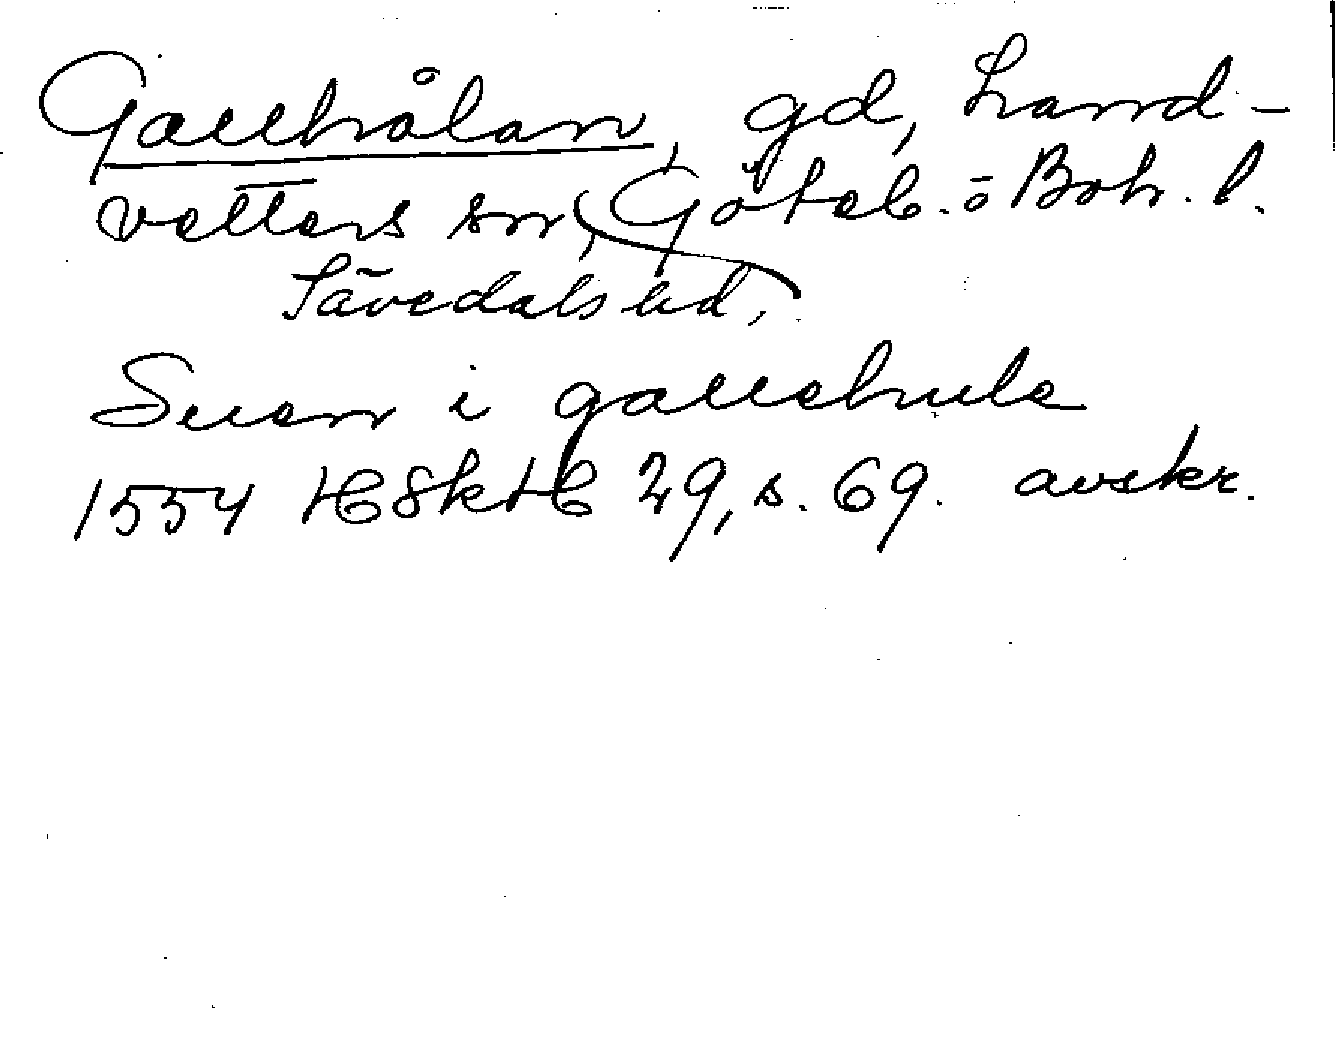 Gallhålan, gd, Land-
vetters sn, Göteb. o Boh. l.
Sävedals hd,
Suen i gallehule
1554 HC8kHC 29, s. 69. avskr.